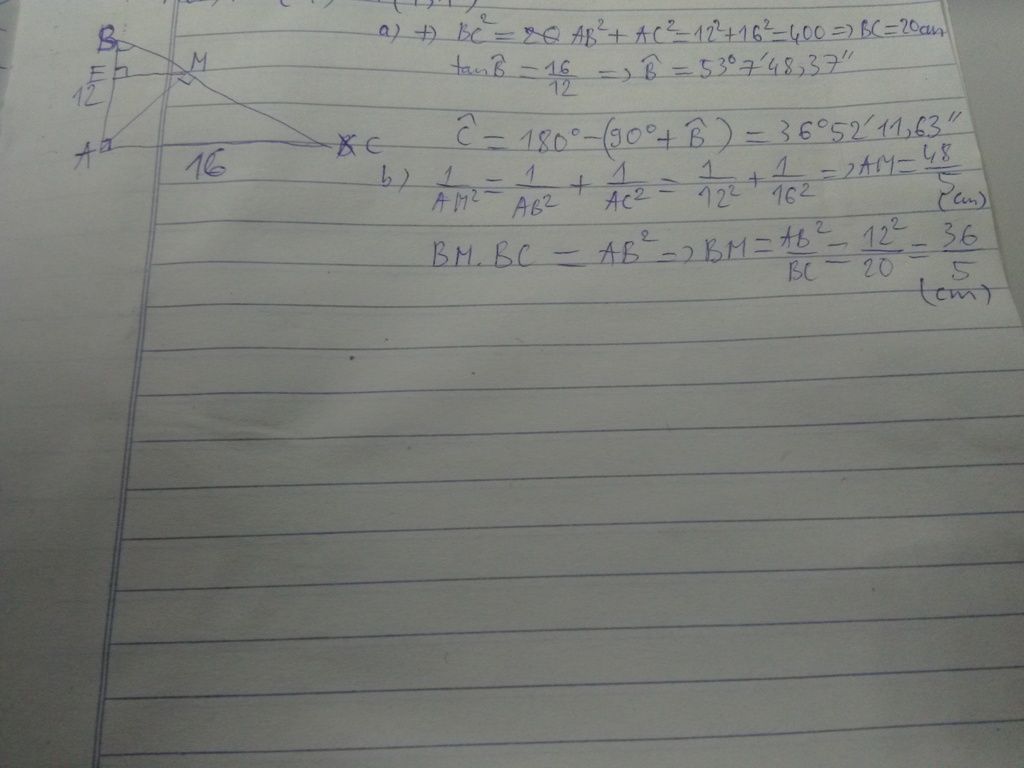 B
E
M
12
A
16
C
a) +) BC² = AB² + AC² = 12² + 16² = 400 => BC = 20cm
tan B̂ = 16/12 => B̂ = 53°7'48,37"
Ĉ = 180° - (90° + B̂) = 36°52'11,63"
b) 1/AM² = 1/AB² + 1/AC² = 1/12² + 1/16² => AM = 48/5 (cm)
BM. BC = AB² => BM = AB²/BC = 12²/20 = 36/5 (cm)